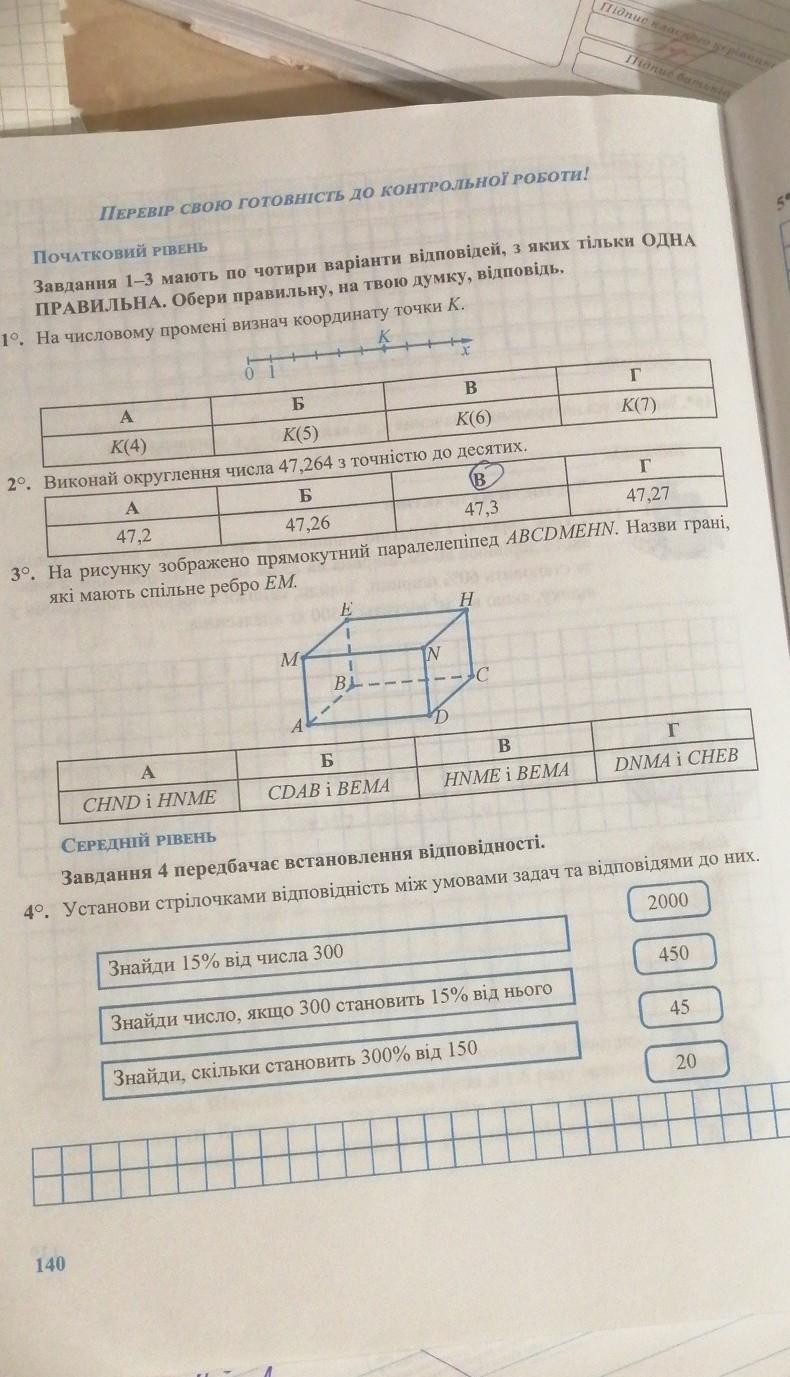 Підпис класного керівника
Підпис батьків
ПЕРЕВІР СВОЮ ГОТОВНІСТЬ ДО КОНТРОЛЬНОЇ РОБОТИ!
ПОЧАТКОВИЙ РІВЕНЬ
Завдання 1–3 мають по чотири варіанти відповідей, з яких тільки ОДНА
ПРАВИЛЬНА. Обери правильну, на твою думку, відповідь.
1°. На числовому промені визнач координату точки K.
K
0 1 x
А Б В Г
K(4) K(5) K(6) K(7)
2°. Виконай округлення числа 47,264 з точністю до десятих.
А Б В Г
47,2 47,26 47,3 47,27
3°. На рисунку зображено прямокутний паралелепіпед ABCDMEHN. Назви грані,
які мають спільне ребро EM.
E H
M N
B C
A D
А Б В Г
CHND і HNME CDAB і BEMA HNME і BEMA DNMA і CHEB
СЕРЕДНІЙ РІВЕНЬ
Завдання 4 передбачає встановлення відповідності.
4°. Установи стрілочками відповідність між умовами задач та відповідями до них.
2000
Знайди 15% від числа 300
450
Знайди число, якщо 300 становить 15% від нього
45
Знайди, скільки становить 300% від 150
20
140